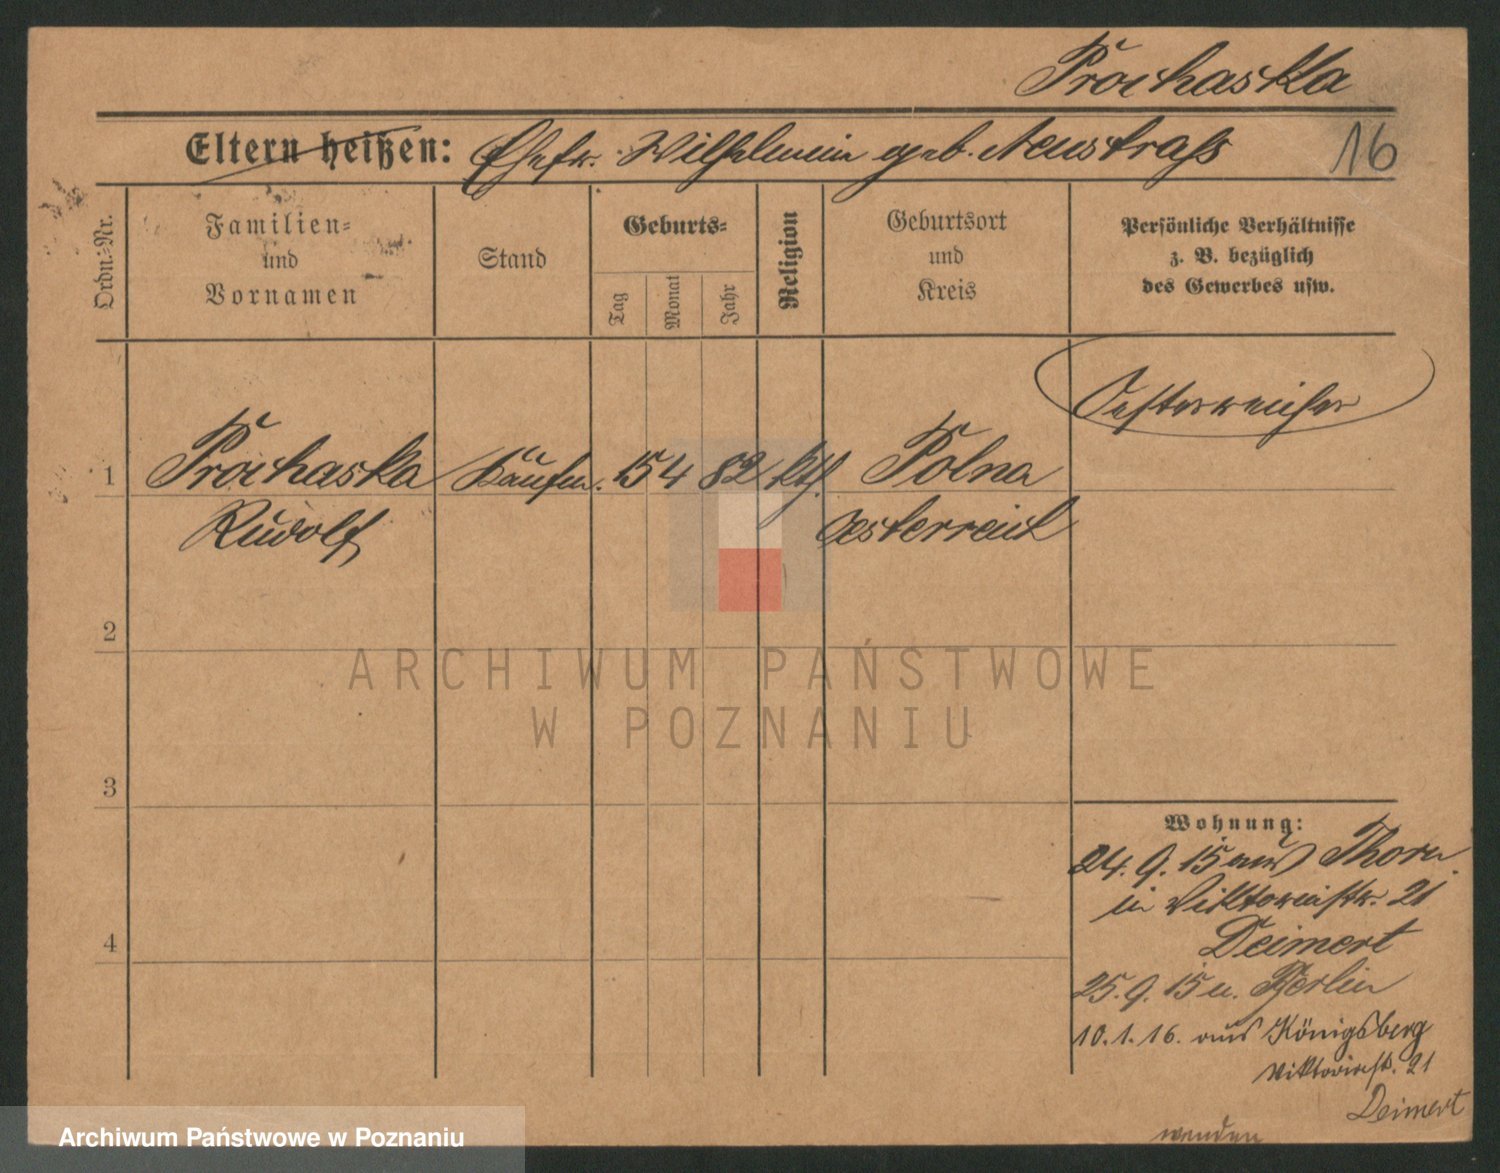 Prochaska
Eltern heißen: Ehefr. Wilhelmine geb. Neustrass
16
Ordn.=Nr.
Familien=
und
Vornamen
Stand
Geburts=
Tag
Monat
Jahr
Religion
Geburtsort
und
Kreis
Persönliche Verhältnisse
z. B. bezüglich
des Gewerbes usw.
Oesterreicher
1 Prochaska Kaufm. 15 4 82 kth. Polna
Rudolf Oesterreich
2
3
4
Wohnung:
24. 9. 15 aus Thorn
in Viktoriastr. 21
Deimert
25. 9. 15 n. Berlin
10. 1. 16. aus Königsberg
Viktoriastr. 21
Deimert
wenden
ARCHIWUM PAŃSTWOWE
W POZNANIU
Archiwum Państwowe w Poznaniu